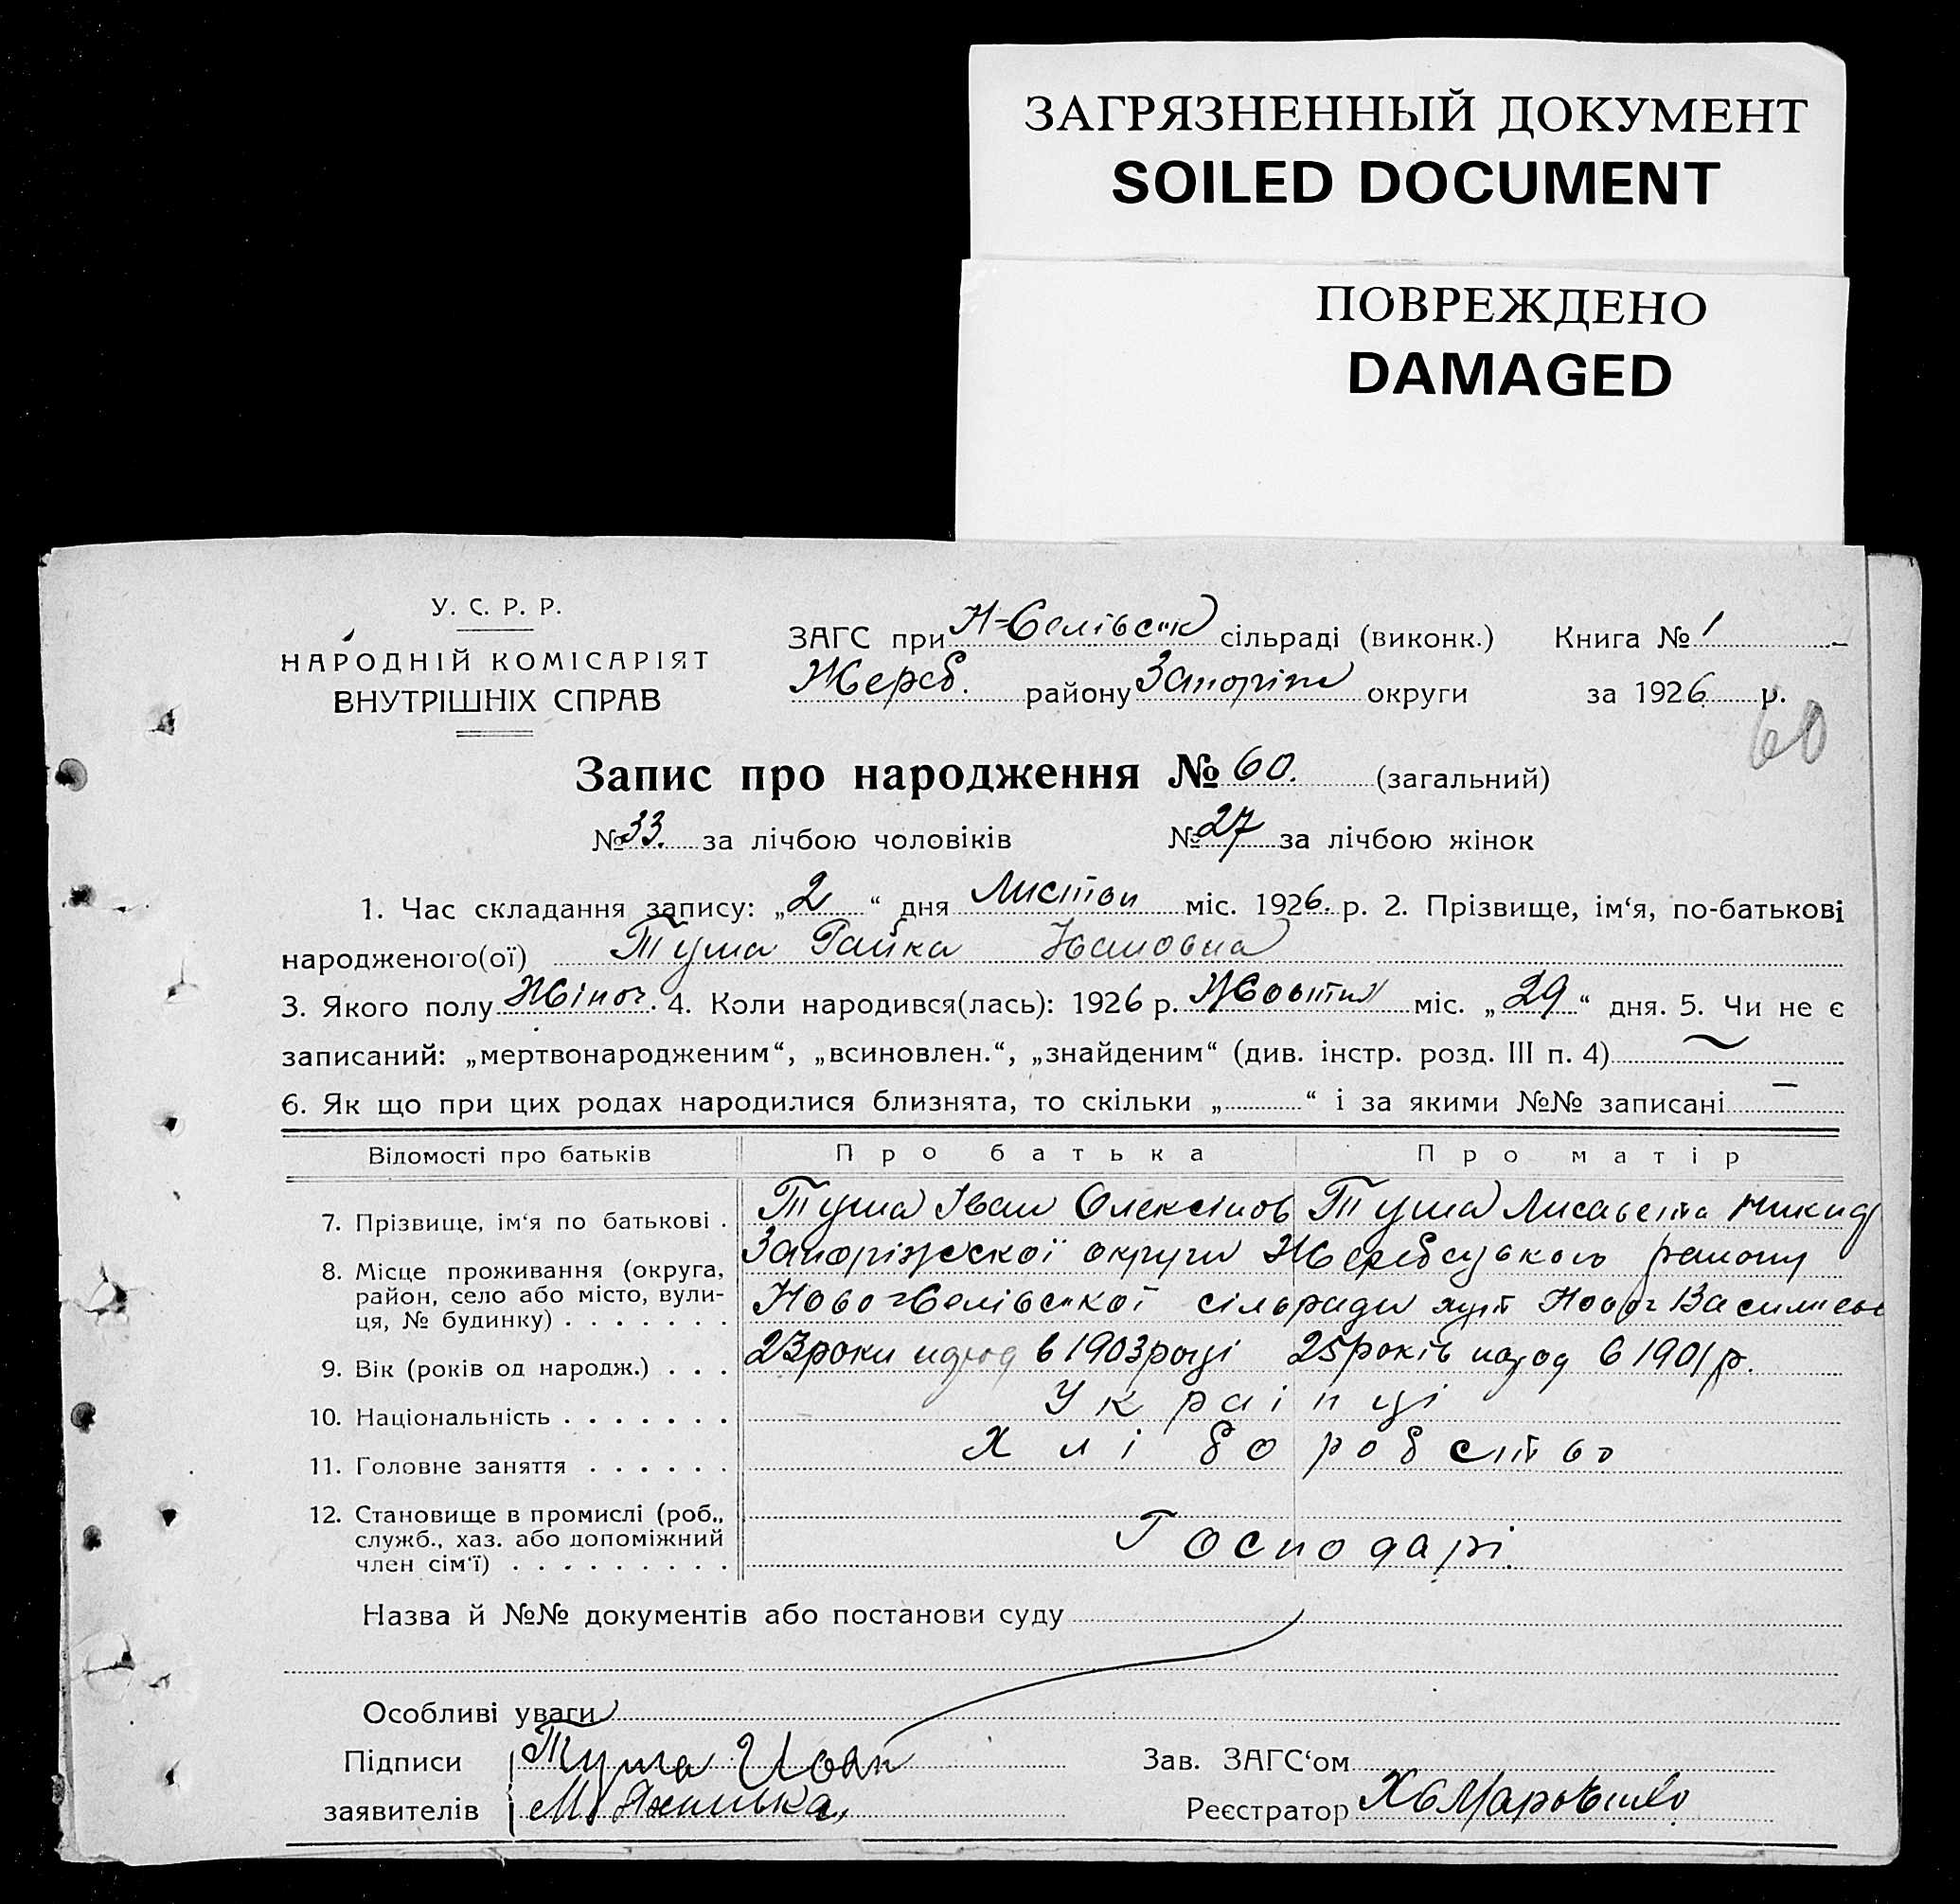 ЗАГРЯЗНЕННЫЙ ДОКУМЕНТ
SOILED DOCUMENT
ПОВРЕЖДЕНО
DAMAGED
У. С. Р. Р.
НАРОДНІЙ КОМІСАРІЯТ
ВНУТРІШНІХ СПРАВ
ЗАГС при сільраді (виконк.) Книга № 1
Жереб. району Запоріж округи за 1926 р.
60
Запис про народження № 60. (загальний)
№ 33. за лічбою чоловіків № 27 за лічбою жінок
1. Час складання запису: „2“ дня Листоп міс. 1926. р. 2. Прізвище, ім‘я, по-батькові
народженого(ої) Тума Райка Івановна
3. Якого полу Жіноч. 4. Коли народився(лась): 1926 р. Жовтня міс. „29“ дня. 5. Чи не є
записаний: „мертвонародженим“, „всиновлен.“, „знайденим“ (див. інстр. розд. III п. 4)
6. Як що при цих родах народилися близнята, то скільки „ “ і за якими №№ записані —
Відомості про батьків Про батька Про матір
7. Прізвище, ім‘я по батькові . Тума Іван Олексійов Тума Лисавета Никид
8. Місце проживання (округа, район, село або місто, вулиця, № будинку) . . . . . . . Запоріжської округи Жеребецького району
сільради
9. Вік (років од народж.) . . . 23 роки народ в 1903 році 25 років народ в 1901 р.
10. Національність . . . . . . . Українці
11. Головне заняття . . . . . . Хліборобство
12. Становище в промислі (роб., служб., хаз. або допоміжний член сім‘ї) . . . . . . . . . Господарі
Назва й №№ документів або постанови суду
Особливі уваги
Підписи Тума Иван Зав. ЗАГС‘ом
заявителів Реєстратор